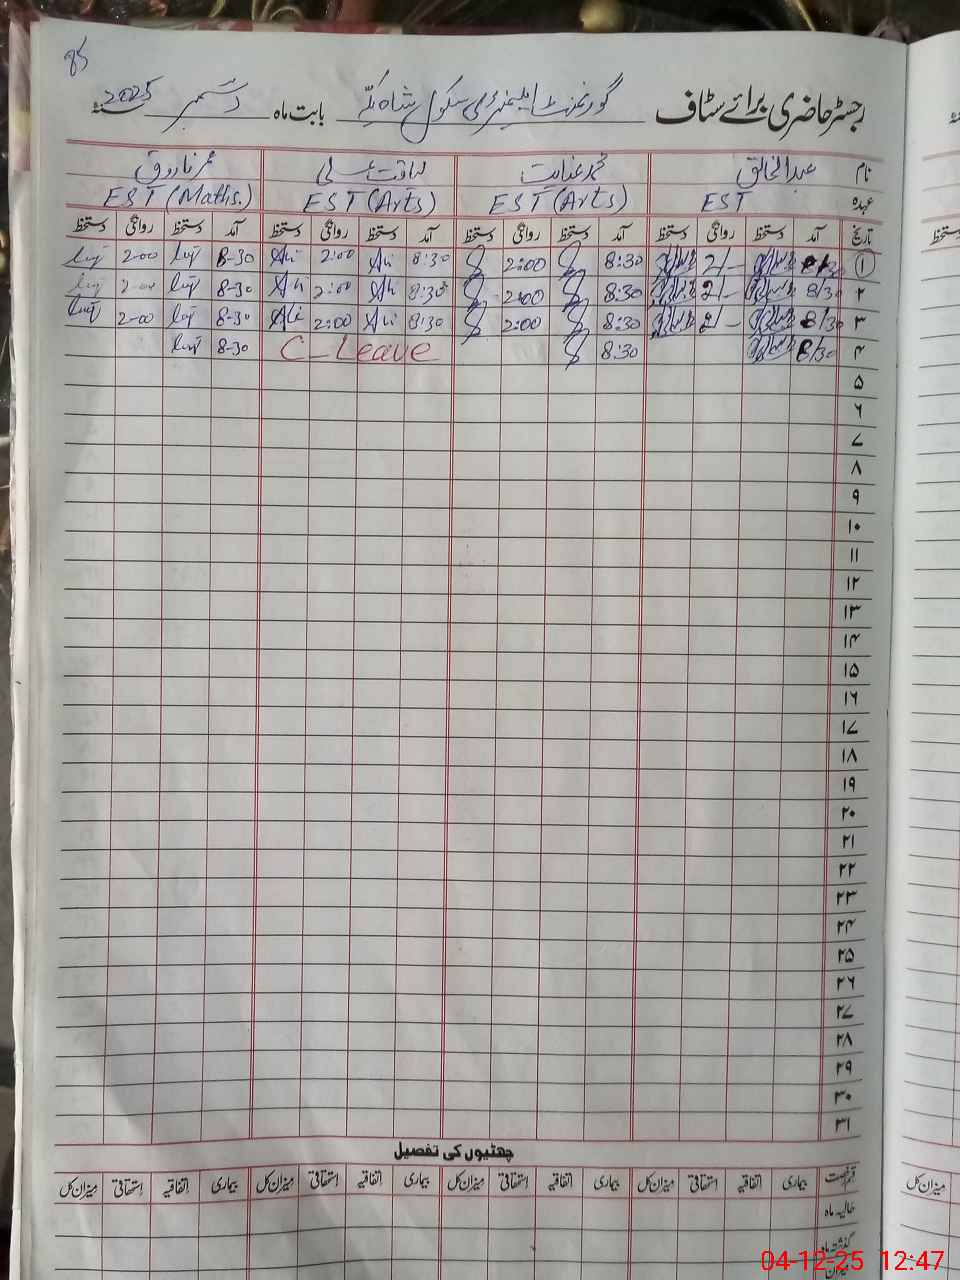 85
رجسٹر حاضری برائے سٹاف گورنمنٹ ایلیمنٹری سکول شاہ بابت ماہ دسمبر 2025ء
نام عبدالخالق محمد عنایت لیاقت علی عمر فاروق
عہدہ EST EST (Arts) EST (Arts) EST (Maths.)
تاریخ آمد دستخط روانگی دستخط آمد دستخط روانگی دستخط آمد دستخط روانگی دستخط آمد دستخط روانگی دستخط
۱ 8/30 2/- 8:30 2:00 8:30 Ali 2:00 Ali 8-30 2-00
۲ 8/30 2/- 8:30 2:00 8:30 Ali 2:00 Ali 8-30 2-00
۳ 8/30 2/- 8:30 2:00 8:30 Ali 2:00 Ali 8-30 2-00
۴ 8/30 8:30 C-Leave 8-30
۵
۶
۷
۸
۹
۱۰
۱۱
۱۲
۱۳
۱۴
۱۵
۱۶
۱۷
۱۸
۱۹
۲۰
۲۱
۲۲
۲۳
۲۴
۲۵
۲۶
۲۷
۲۸
۲۹
۳۰
۳۱
چھٹیوں کی تفصیل
قسم رخصت بیماری اتفاقیہ استحقاقی میزان کل بیماری اتفاقیہ استحقاقی میزان کل بیماری اتفاقیہ استحقاقی میزان کل بیماری اتفاقیہ استحقاقی میزان کل
حالیہ ماہ
گذشتہ ماہ
میزان
دستخط
میزان کل
04-12-25 12:47